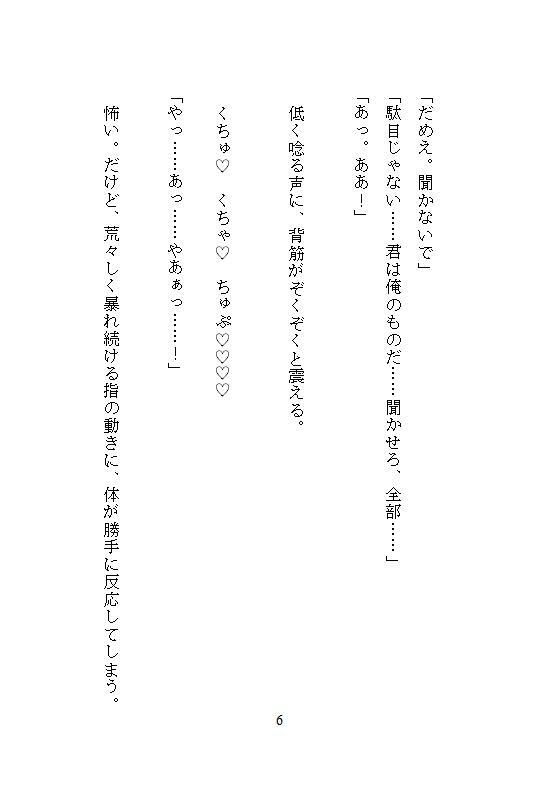 「だめえ。聞かないで」
「駄目じゃない……君は俺のものだ……聞かせろ、全部……」
「あっ。ああ！」
低く唸る声に、背筋がぞくぞくと震える。
くちゅ♡　くちゃ♡　ちゅぷ♡♡♡♡
「やっ……あっ……やあぁっ……！」
怖い。だけど、荒々しく暴れ続ける指の動きに、体が勝手に反応してしまう。
6